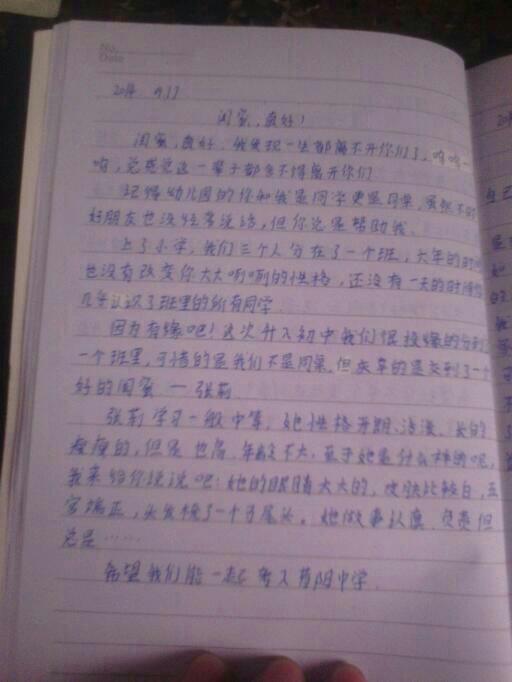 No.
Date
闺蜜,真好!
闺蜜,真好,我发现一生都离不开你们了,哈哈一
哈,总感觉这一辈子都舍不得离开你们
记得幼儿园的你和我是同学更是同桌,虽然不
好朋友也没经常说话,但你总是帮助我。
上了小学,我们三个人分在了一个班,六年的时
也没有改变你大大咧咧的性格,还没有一天的时
几乎认识了班里的所有同学
因为有缘吧!这次升入初中我们很投缘的分到
一个班里,可惜的是我们不是同桌,但庆幸的是交到了一个
好的闺蜜 — 张莉
张莉学习一般中等,她性格开朗、活泼、长的
瘦瘦的,但是也高,年龄不大,至于她是什么样的呢,
我来给你说说吧:她的眼睛大大的,皮肤比较白,五
官端正,头发梳了一个马尾头。她做事认真,负责但
总是……
希望我们能一起考入 中学
自己
她
的
我